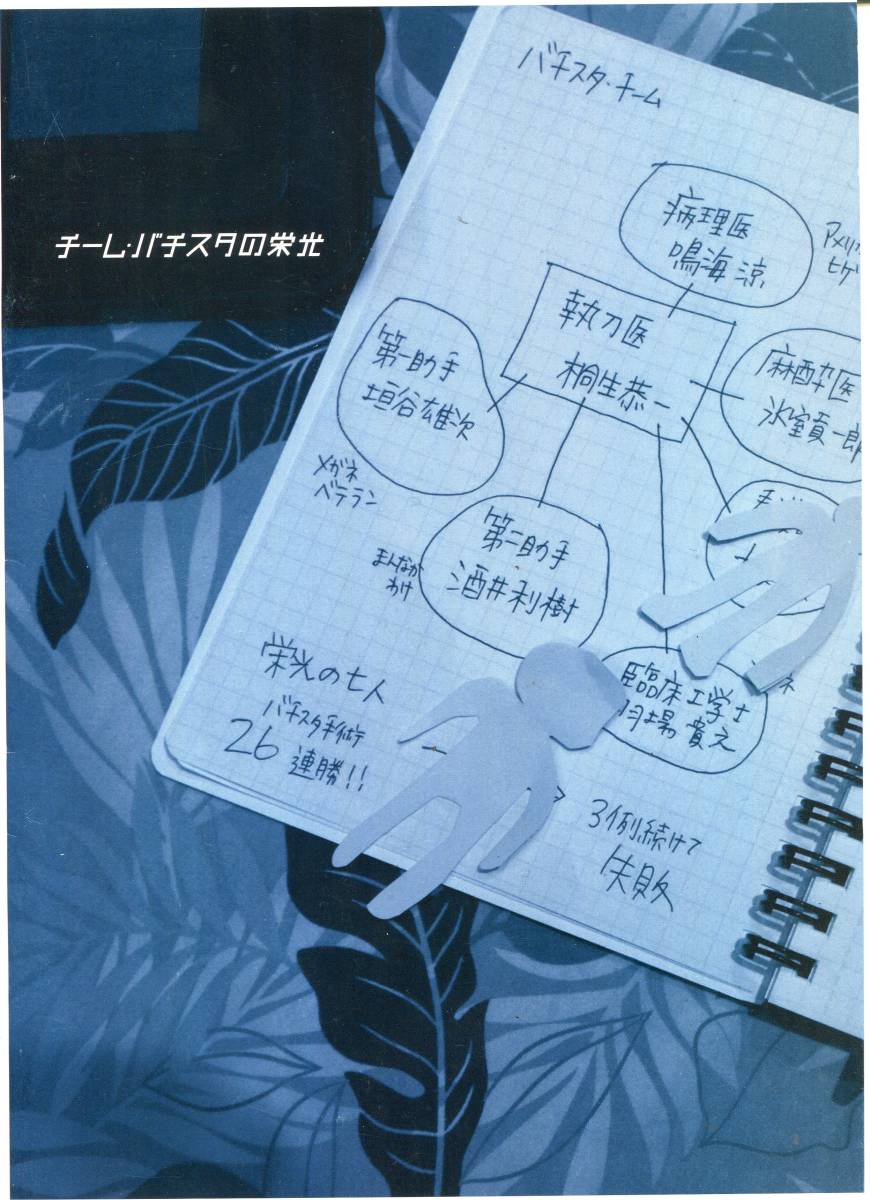 チーム・バチスタの栄光
バチスタ・チーム
病理医
鳴海 涼
アメリカ
ヒゲ
執刀医
桐生恭一
麻酔医
氷室貢一郎
第一助手
垣谷雄次
メガネ
ベテラン
第二助手
酒井利樹
まんなか
わけ
臨床工学士
羽場貴之
ネ
栄光の七人
バチスタ手術
26 連勝!!
→ 3例続けて
失敗